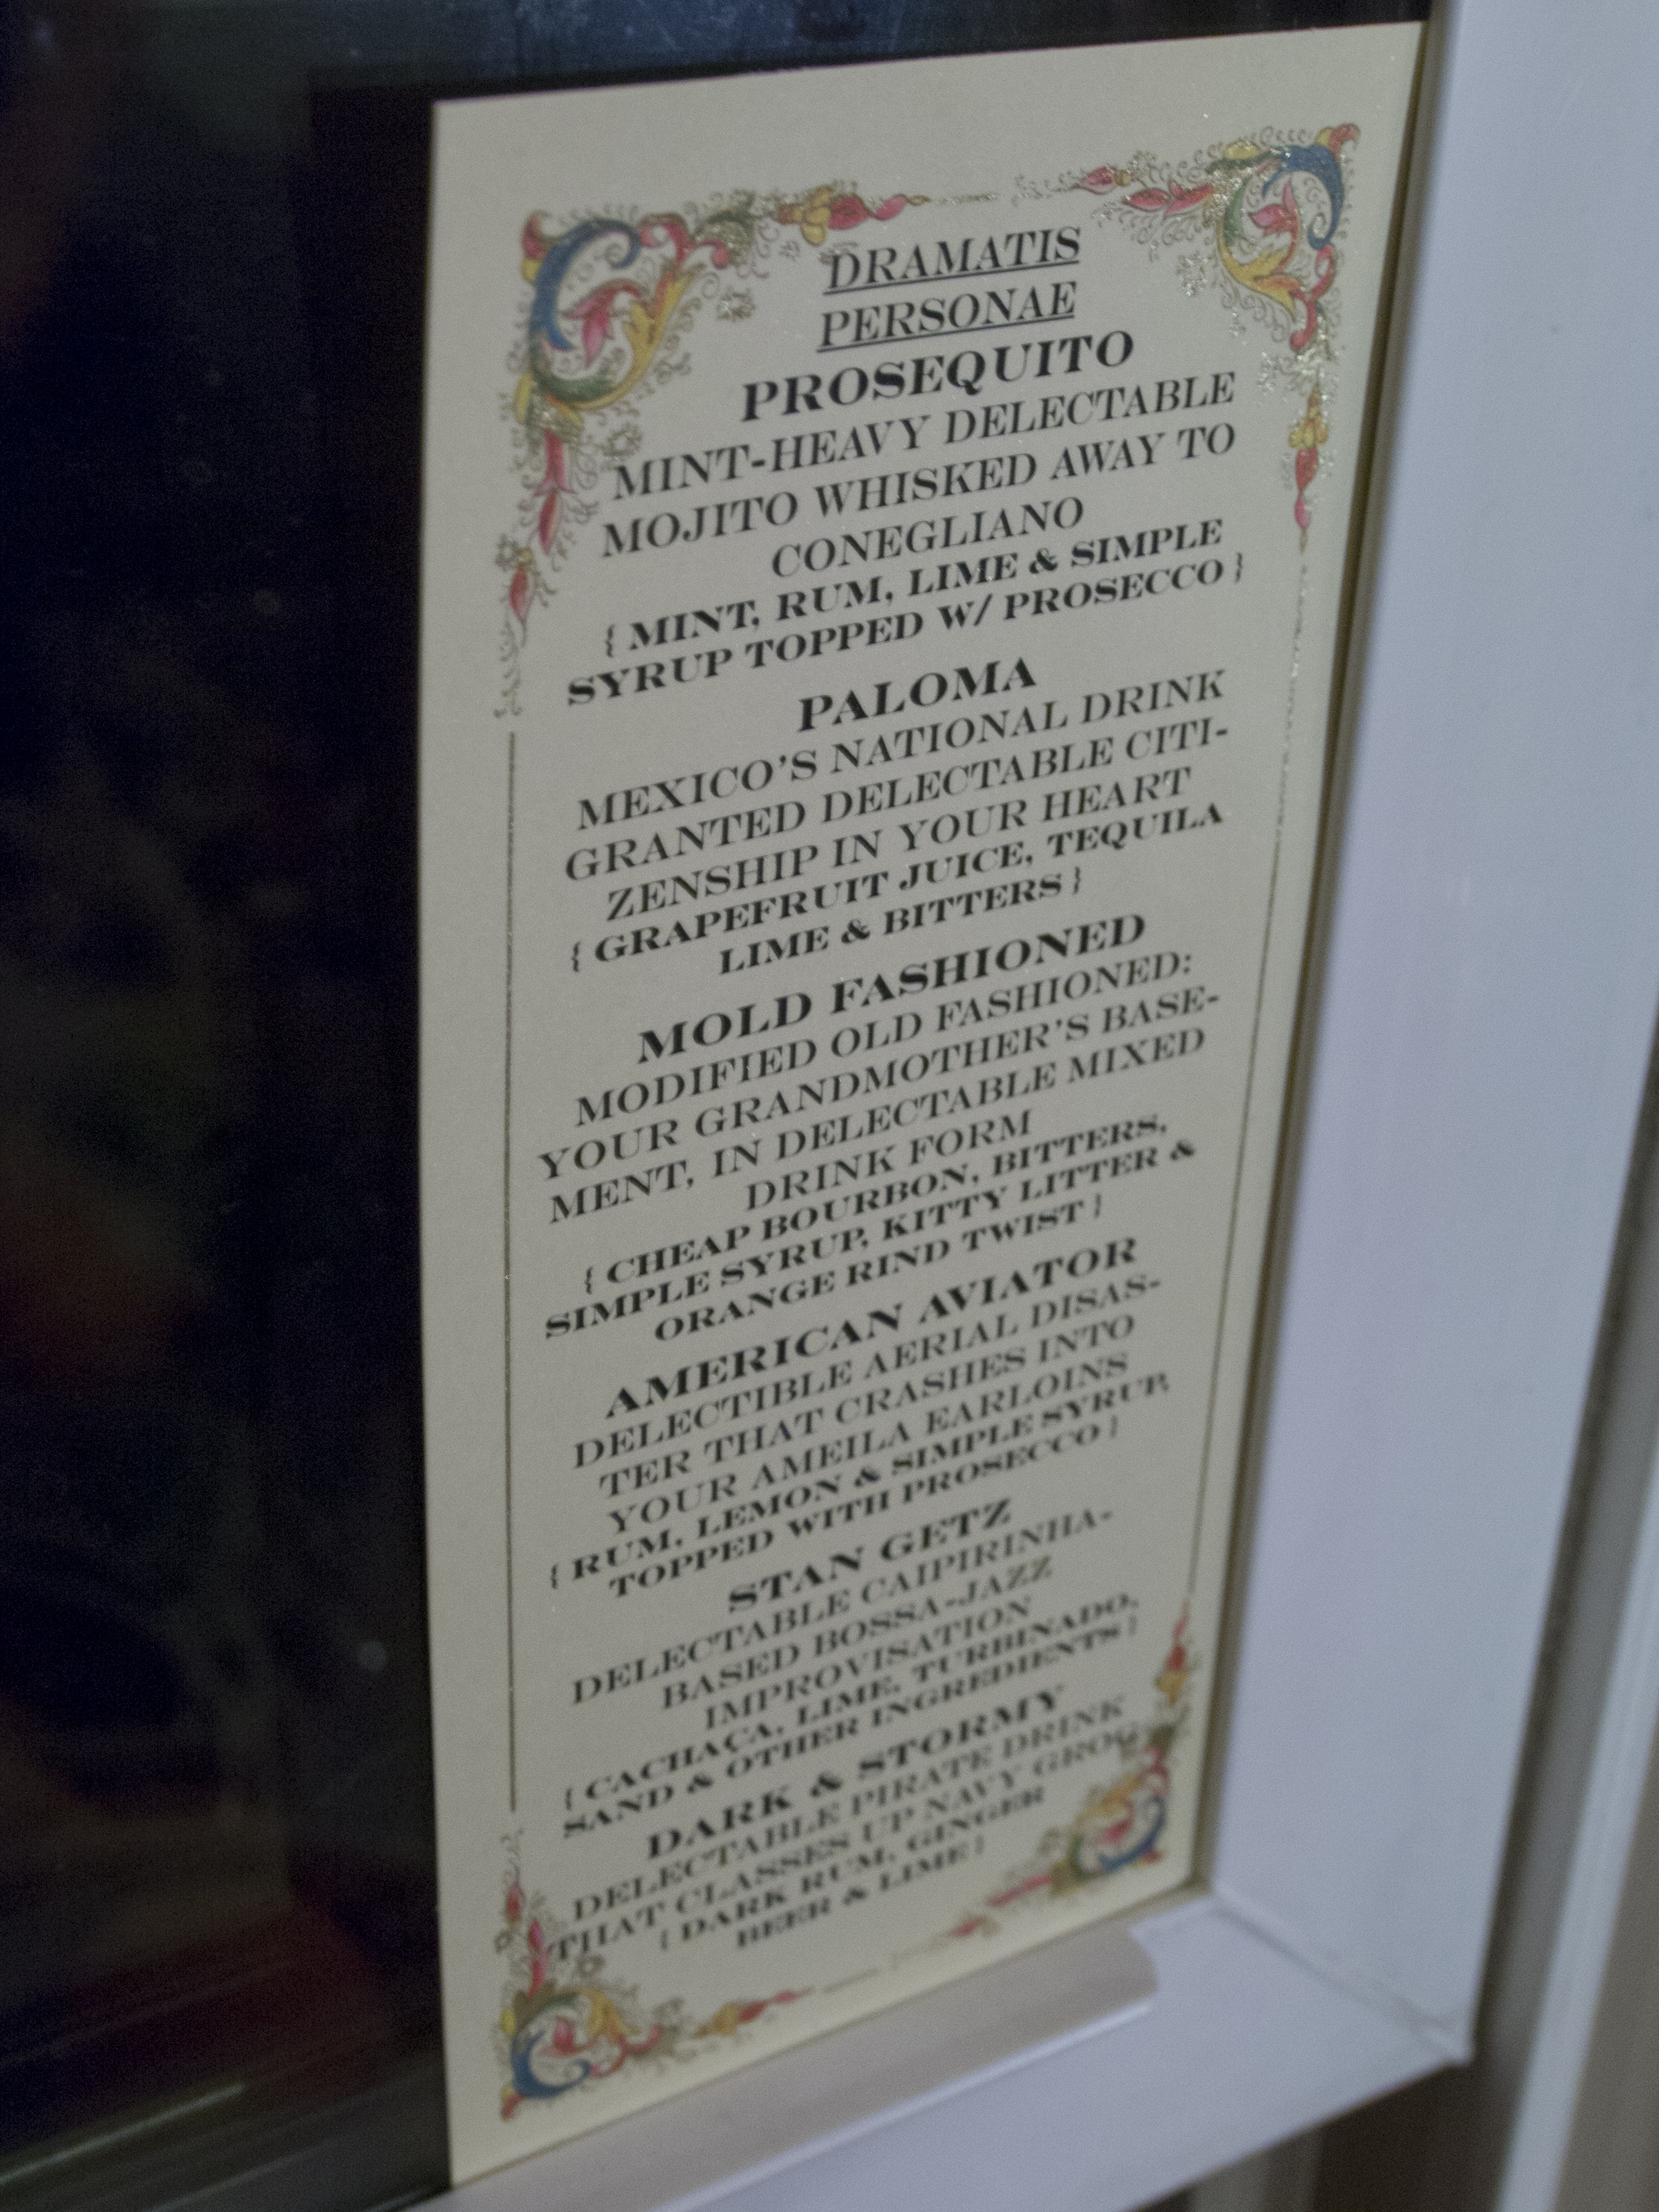 DRAMATIS
PERSONAE
PROSEQUITO
MINT-HEAVY DELECTABLE
MOJITO WHISKED AWAY TO
CONEGLIANO
{ MINT, RUM, LIME & SIMPLE
SYRUP TOPPED W/ PROSECCO }
PALOMA
MEXICO'S NATIONAL DRINK
GRANTED DELECTABLE CITI-
ZENSHIP IN YOUR HEART
{ GRAPEFRUIT JUICE, TEQUILA
LIME & BITTERS }
MOLD FASHIONED
MODIFIED OLD FASHIONED:
YOUR GRANDMOTHER'S BASE-
MENT, IN DELECTABLE MIXED
DRINK FORM
{ CHEAP BOURBON, BITTERS,
SIMPLE SYRUP, KITTY LITTER &
ORANGE RIND TWIST }
AMERICAN AVIATOR
DELECTIBLE AERIAL DISAS-
TER THAT CRASHES INTO
YOUR AMEILA EARLOINS
{ RUM, LEMON & SIMPLE SYRUP,
TOPPED WITH PROSECCO }
STAN GETZ
DELECTABLE CAIPIRINHA-
BASED BOSSA-JAZZ
IMPROVISATION
{ CACHAÇA, LIME, TURBINADO,
SAND & OTHER INGREDIENTS }
DARK & STORMY
DELECTABLE PIRATE DRINK
THAT CLASSES UP NAVY GROG
{ DARK RUM, GINGER
BEER & LIME }